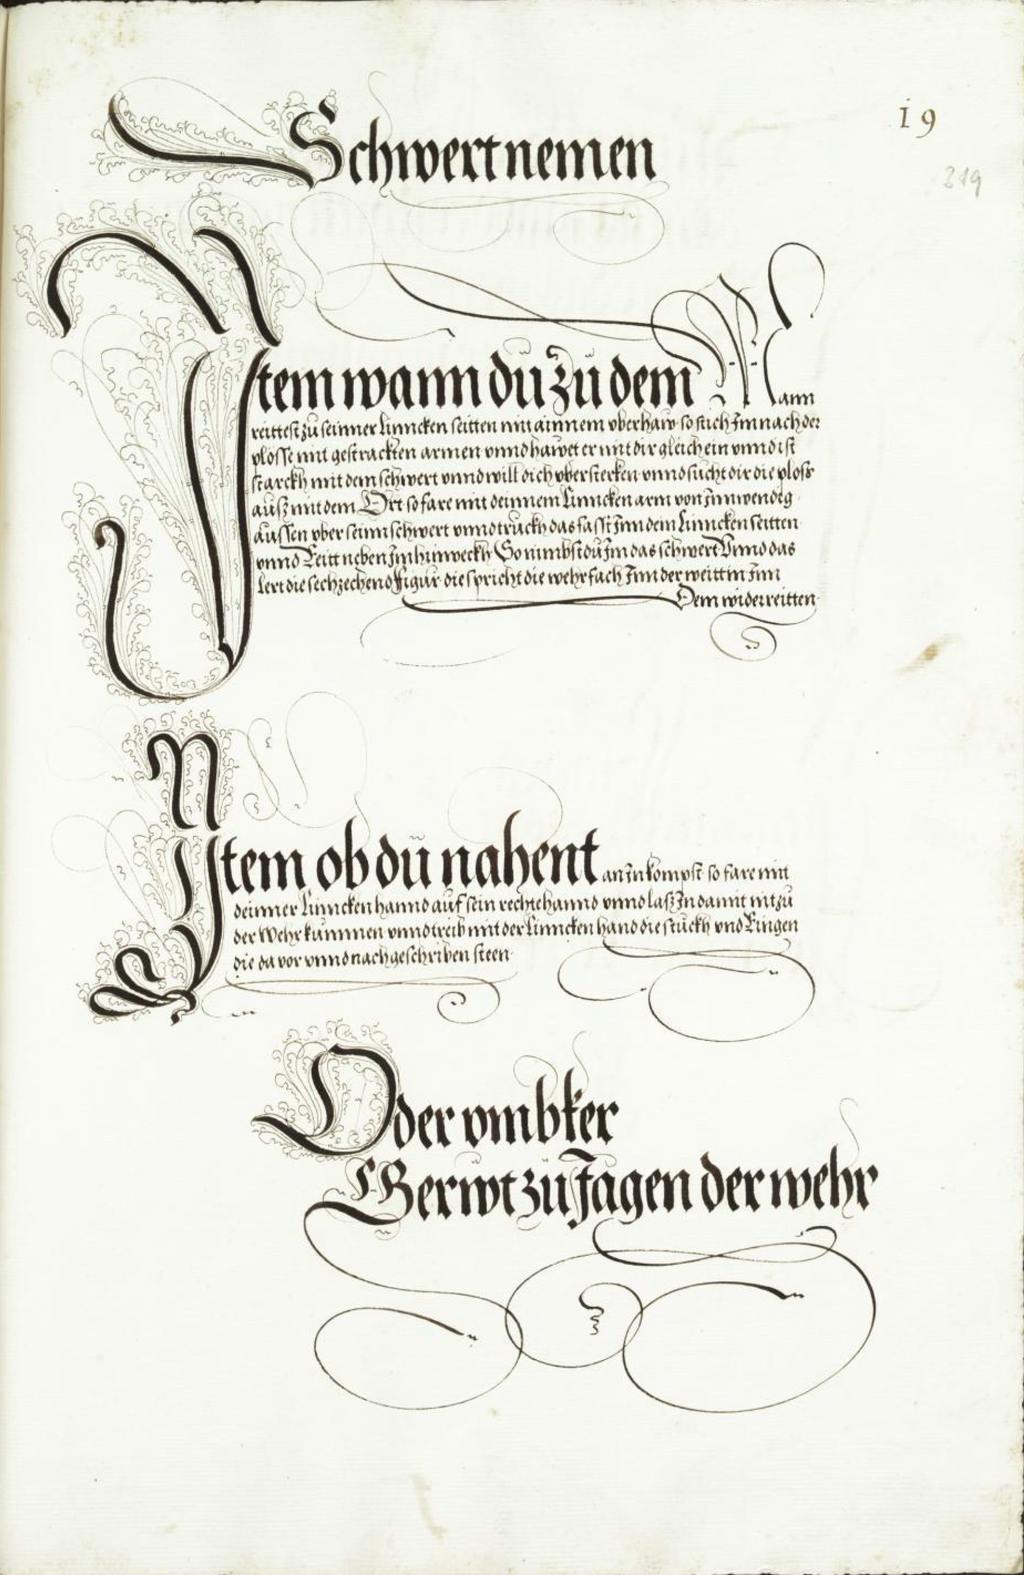 19
319
Schwert nemen
Item wann dü zü dem Mann
reittest zü seinner Linncken seitten mit ainnem vberhaw so stich Im nach der
plosse mit gestrackten armen vnnd hawet er mit dir gleich ein vnnd ist
starckh mit dem schwert vnnd will dich vbersterken vnnd sücht dir die plosß
aüsz mit dem Ort so fare mit deinnem Linncken arm von Innwendig
Aüssen vber seinn schwert vnnd trückh das fasst Inn dem Linncken seitten
vnnd Reitt neben Im hinweckh So nimbst dü Im das schwert Vnnd das
lert die sechzechend Figür die spricht die wehr fach Inn der weitt in Inn
Dem widerreitten
Item ob dü nahent an In kompst so fare mit
deinner Linncken hannd auf sein rechte hannd vnnd lasz In damit nit zü
der Wehr kümmen vnnd treib mit der Linncken hand die stückh vnd Ringen
die da vor vnnd nach geschriben steen
Oder vmbker
Gerüt zü Jagen der wehr